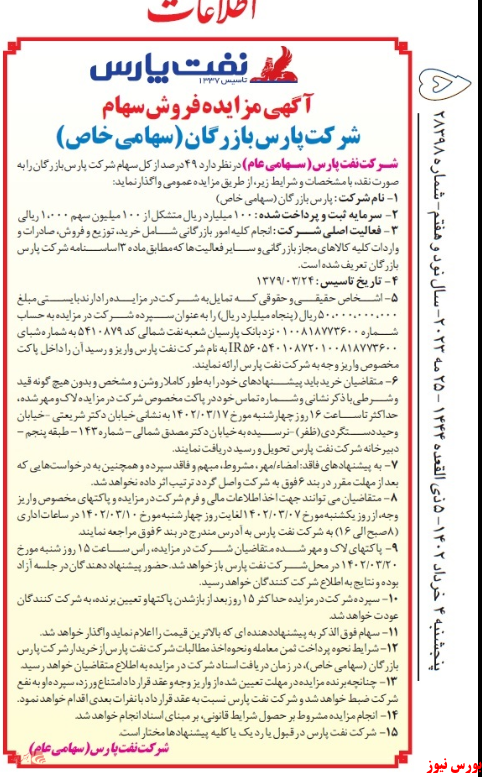 اطلاعات
نفت پارس
تاسیس ۱۳۳۷
آگهی مزایده فروش سهام
شرکت پارس بازرگان (سهامی خاص)
شرکت نفت پارس (سهامی عام) در نظر دارد ۴۹ درصد از کل سهام شرکت پارس بازرگان را به
صورت نقد، با مشخصات و شرایط زیر، از طریق مزایده عمومی واگذار نماید:
۱- نام شرکت : پارس بازرگان (سهامی خاص)
۲- سرمایه ثبت و پرداخت شده : ۱۰۰ میلیارد ریال متشکل از ۱۰۰ میلیون سهم ۱,۰۰۰ ریالی
۳- فعالیت اصلی شرکت : انجام کلیه امور بازرگانی شامل خرید، توزیع و فروش، صادرات و
واردات کلیه کالاهای مجاز بازرگانی و سایر فعالیت ها که مطابق ماده ۳ اساسنامه شرکت پارس
بازرگان تعریف شده است.
۴- تاریخ تاسیس : ۱۳۷۹/۰۳/۲۴
۵- اشخاص حقیقی و حقوقی که تمایل به شرکت در مزایده را دارند بایستی مبلغ
۵۰,۰۰۰,۰۰۰,۰۰۰ ریال (پنجاه میلیارد ریال) را به عنوان سپرده شرکت در مزایده به حساب
شماره ۰۱۰۰۸۱۸۷۷۳۶۰۰ نزد بانک پارسیان شعبه نفت شمالی کد ۵۴۱۰۸۷۹ به شماره شبای
IR۵۶۰۵۴۰۱۰۸۷۲۰۱۰۰۸۱۸۷۷۳۶۰۰ به نام شرکت نفت پارس واریز و رسید آن را داخل پاکت
مخصوص واریز وجه به شرکت نفت پارس ارائه نمایند.
۶- متقاضیان خرید باید پیشنهادهای خود را به طور کاملا روشن و مشخص و بدون هیچ گونه قید
و شرطی با ذکر نشانی و شماره تماس خود در پاکت مخصوص شرکت در مزایده لاک و مهر شده،
حداکثر تا ساعت ۱۶ روز چهارشنبه مورخ ۱۴۰۲/۰۳/۱۷ به نشانی خیابان دکتر شریعتی - خیابان
وحید دستگردی (ظفر) - نرسیده به خیابان دکتر مصدق شمالی - شماره ۱۴۳ - طبقه پنجم -
دبیرخانه شرکت نفت پارس تحویل و رسید دریافت نمایند.
۷- به پیشنهادهای فاقد: امضاء/مهر، مشروط، مبهم و فاقد سپرده و همچنین به درخواست‌هایی که
بعد از مهلت مقرر در بند ۶ فوق به شرکت واصل گردد ترتیب اثر داده نخواهد شد.
۸- متقاضیان می توانند جهت اخذ اطلاعات مالی و فرم شرکت در مزایده و پاکتهای مخصوص واریز
وجه، از روز یکشنبه مورخ ۱۴۰۲/۰۳/۰۷ لغایت روز چهارشنبه مورخ ۱۴۰۲/۰۳/۱۰ در ساعات اداری
(۸ صبح الی ۱۶) به شرکت نفت پارس به آدرس مندرج در بند ۶ فوق مراجعه نمایند.
۹- پاکتهای لاک و مهر شده متقاضیان شرکت در مزایده، راس ساعت ۱۵ روز شنبه مورخ
۱۴۰۲/۰۳/۲۰ در محل شرکت نفت پارس باز خواهد شد. حضور پیشنهاد دهندگان در جلسه آزاد
بوده و نتایج به اطلاع شرکت کنندگان خواهد رسید.
۱۰- سپرده شرکت در مزایده حداکثر ۱۵ روز بعد از باز شدن پاکتها و تعیین برنده، به شرکت کنندگان
عودت خواهد شد.
۱۱- سهام فوق الذکر به پیشنهاد دهنده ای که بالاترین قیمت را اعلام نماید واگذار خواهد شد.
۱۲- شرایط نحوه پرداخت ثمن معامله و نحوه اخذ مطالبات شرکت نفت پارس از خریدار شرکت پارس
بازرگان (سهامی خاص)، در زمان دریافت اسناد شرکت در مزایده به اطلاع متقاضیان خواهد رسید.
۱۳- چنانچه برنده مزایده در مهلت تعیین شده از واریز وجه و عقد قرارداد امتناع ورزد، سپرده او به نفع
شرکت ضبط خواهد شد و شرکت نفت پارس نسبت به عقد قرارداد با نفرات بعدی اقدام خواهد نمود.
۱۴- انجام مزایده مشروط بر حصول شرایط قانونی، بر مبنای اسناد انجام خواهد شد.
۱۵- شرکت نفت پارس در قبول یا رد یک یا کلیه پیشنهادها مختار است.
شرکت نفت پارس (سهامی عام)
۵
پنجشنبه ۴ خرداد ۱۴۰۲ - ۵ ذی القعده ۱۴۴۴ - ۲۵ مه ۲۰۲۳ - سال نود و هفتم - شماره ۲۸۳۹۸
بورس نیوز